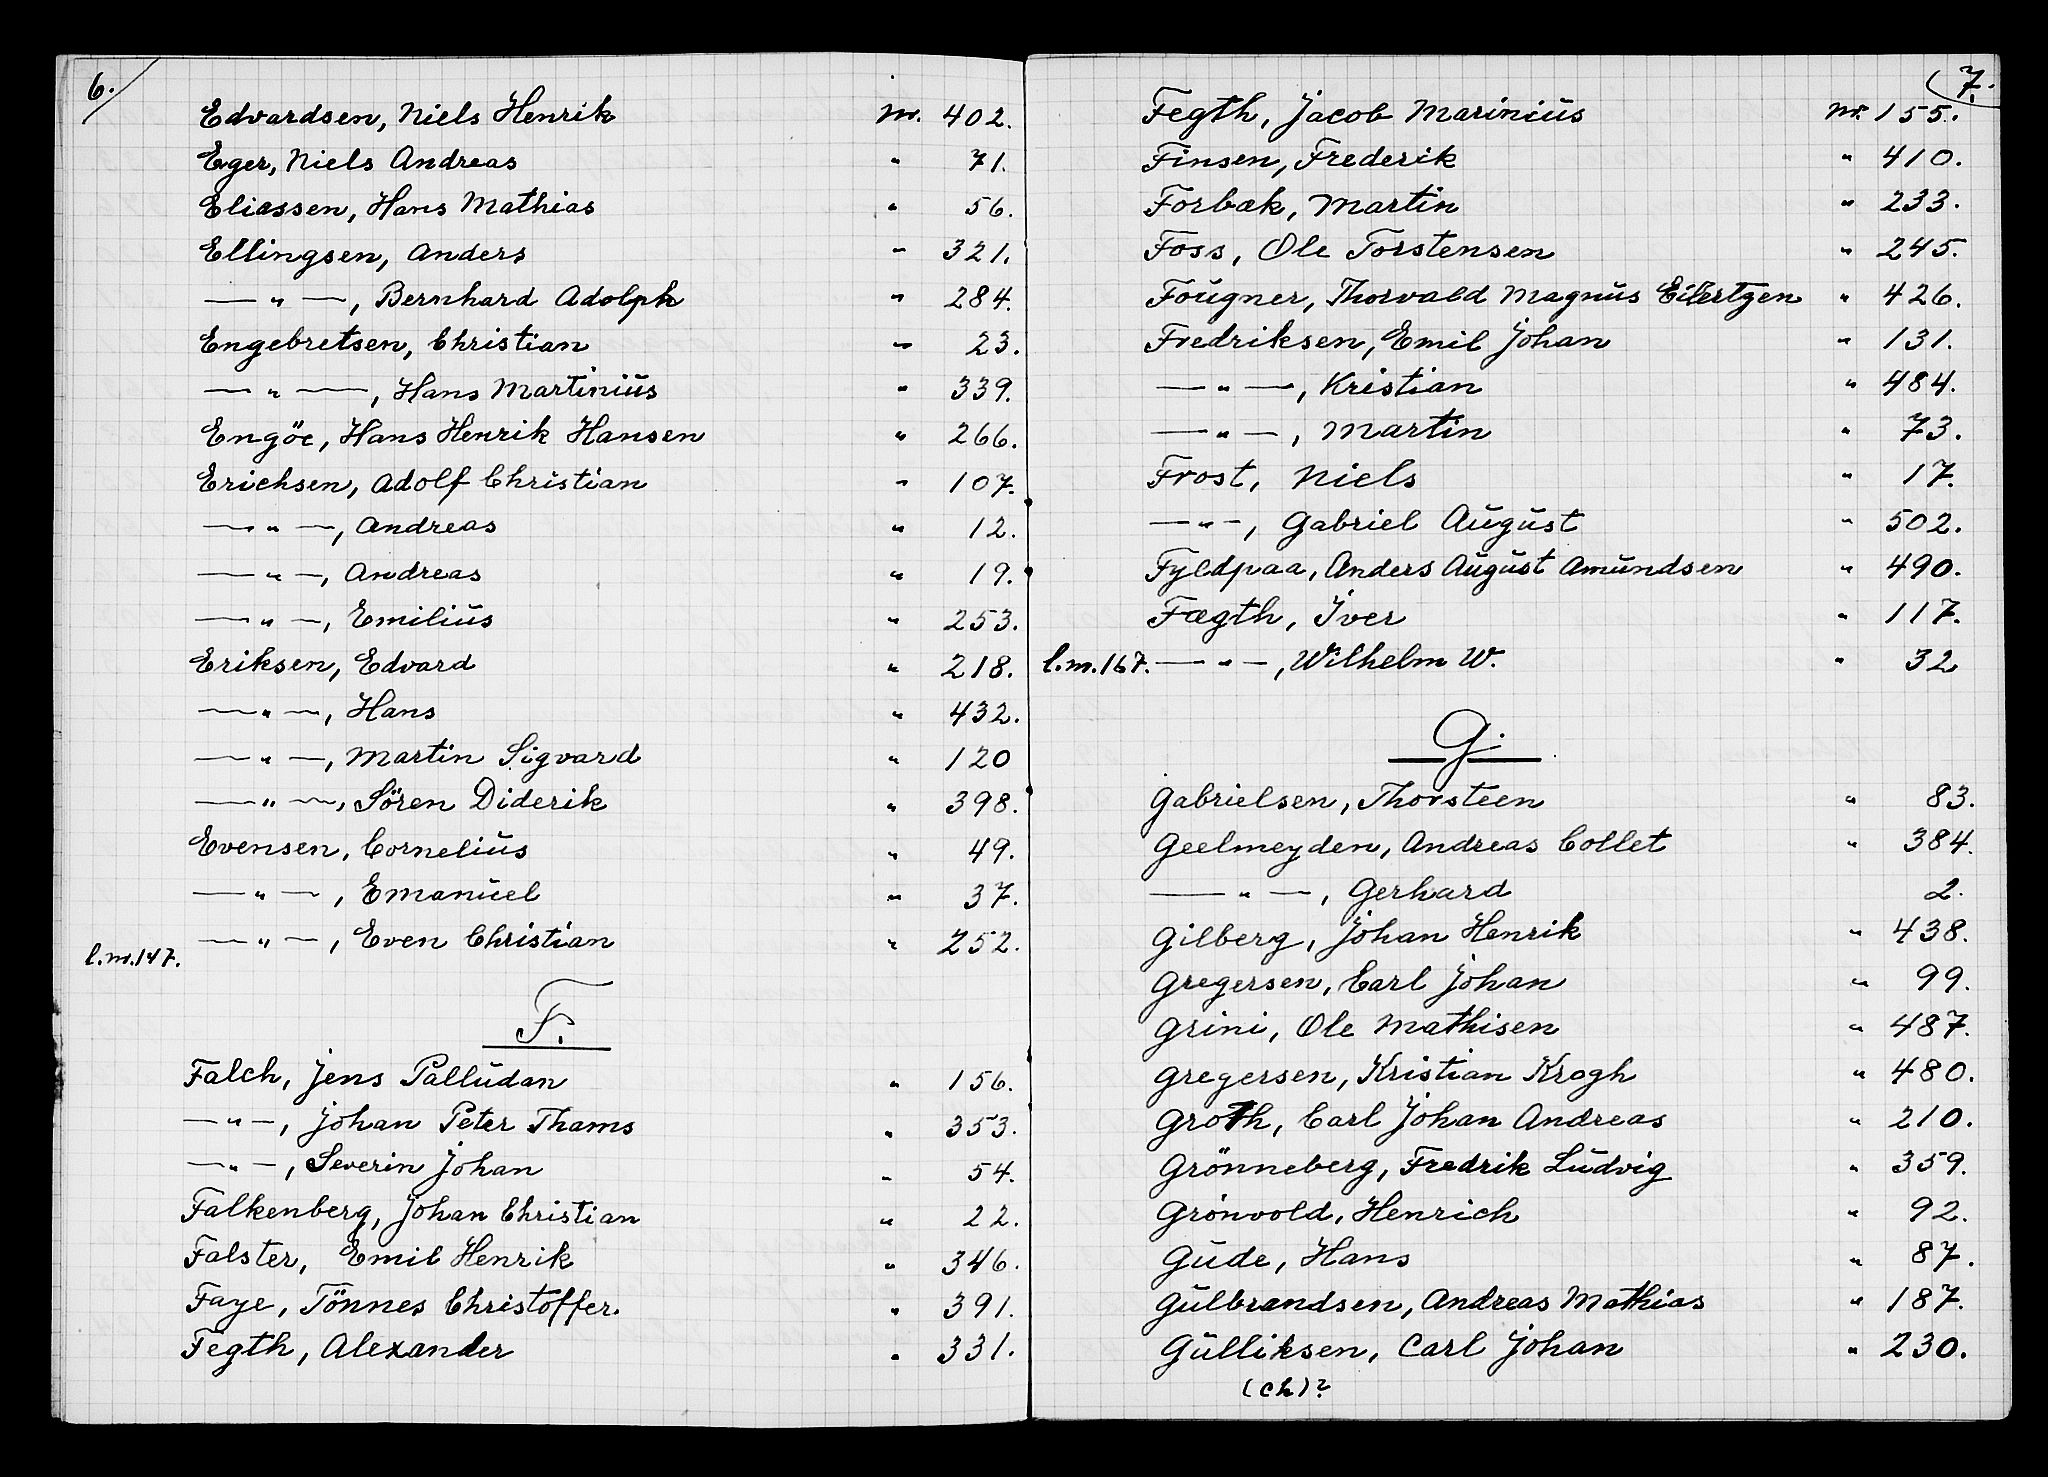 6.
Edvardsen, Niels Henrik nr. 402.
Eger, Niels Andreas " 71.
Eliassen, Hans Mathias " 56.
Ellingsen, Anders " 321.
— " —, Bernhard Adolph " 284.
Engebretsen, Christian " 23.
— " —, Hans Martinius " 339.
Engöe, Hans Henrik Hansen " 266.
Erichsen, Adolf Christian " 107.
— " —, Andreas " 12.
— " —, Andreas " 19.
— " —, Emilius " 253.
Eriksen, Edvard " 218.
— " —, Hans " 432.
— " —, Martin Sigvard " 120
— " —, Sören Diderik " 398.
Evensen, Cornelius " 49.
— " —, Emanuel " 37.
— " —, Even Christian " 252.
l.nr.147.
F.
Falch, Jens Palludan " 156.
— " —, Johan Peter Thams " 353.
— " —, Severin Johan " 54.
Falkenberg, Johan Christian " 22.
Falster, Emil Henrik " 346.
Faye, Tönnes Christoffer. " 391.
Fegth, Alexander " 331.
7.
Fegth, Jacob Marinius nr. 155.
Finsen, Frederik " 410.
Forbæk, Martin " 233.
Foss, Ole Torstensen " 245.
Fougner, Thorvald Magnus Eilertzen " 426.
Fredriksen, Emil Johan " 131.
— " —, Kristian " 484.
— " —, Martin " 73.
Frost, Niels " 17.
— " —, Gabriel August " 502.
Fyldpaa, Anders August Amundsen " 490.
Fægth, Iver " 117.
l.nr.167. — " —, Wilhelm W. " 32
G.
Gabrielsen, Thorsteen " 83.
Geelmeyden, Andreas Collet " 384.
— " —, Gerhard 2.
Gilberg, Johan Henrik " 438.
Gregersen, Carl Johan " 99.
Grini, Ole Mathisen " 487.
Gregersen, Kristian Krogh " 480.
Groth, Carl Johan Andreas " 210.
Grönneberg, Fredrik Ludvig " 359.
Grönvold, Henrich " 92.
Gude, Hans " 87.
Gulbrandsen, Andreas Mathias " 187.
Gulliksen, Carl Johan " 230.
(ch)?